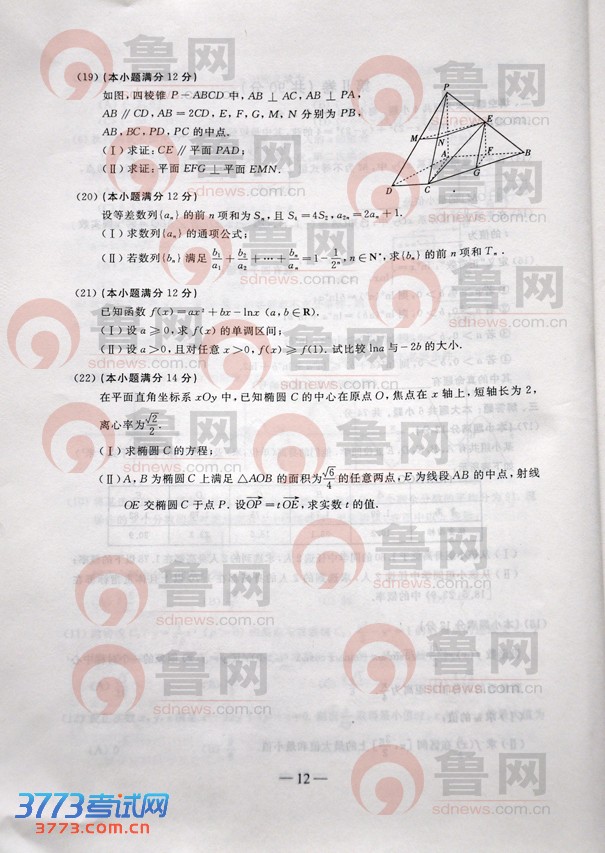 (19) (本小题满分 12 分)
如图,四棱锥 P-ABCD 中, AB ⊥ AC, AB ⊥ PA,
AB ∥ CD, AB = 2CD, E, F, G, M, N 分别为 PB,
AB, BC, PD, PC 的中点.
(Ⅰ) 求证: CE ∥ 平面 PAD;
(Ⅱ) 求证: 平面 EFG ⊥ 平面 EMN.
P
E
M
N
A
F
B
G
D
C
(20) (本小题满分 12 分)
设等差数列{aₙ} 的前 n 项和为 Sₙ, 且 S₄ = 4S₂, a₂ₙ = 2aₙ + 1.
(Ⅰ) 求数列{aₙ} 的通项公式;
(Ⅱ) 若数列{bₙ} 满足 b₁/a₁ + b₂/a₂ + … + bₙ/aₙ = 1 - 1/2ⁿ, n ∈ N*, 求{bₙ} 的前 n 项和 Tₙ.
(21) (本小题满分 12 分)
已知函数 f(x) = ax² + bx - lnx (a, b ∈ R).
(Ⅰ) 设 a ≥ 0, 求 f(x) 的单调区间;
(Ⅱ) 设 a > 0, 且对任意 x > 0, f(x) ≥ f(1). 试比较 lna 与 -2b 的大小.
(22) (本小题满分 14 分)
在平面直角坐标系 xOy 中, 已知椭圆 C 的中心在原点 O, 焦点在 x 轴上, 短轴长为 2,
离心率为 √2/2.
(Ⅰ) 求椭圆 C 的方程;
(Ⅱ) A, B 为椭圆 C 上满足 △AOB 的面积为 √6/4 的任意两点, E 为线段 AB 的中点, 射线
OE 交椭圆 C 于点 P. 设 OP = t OE, 求实数 t 的值.
— 12 —
3773考试网
3773.com.cn
鲁网
sdnews.com.cn